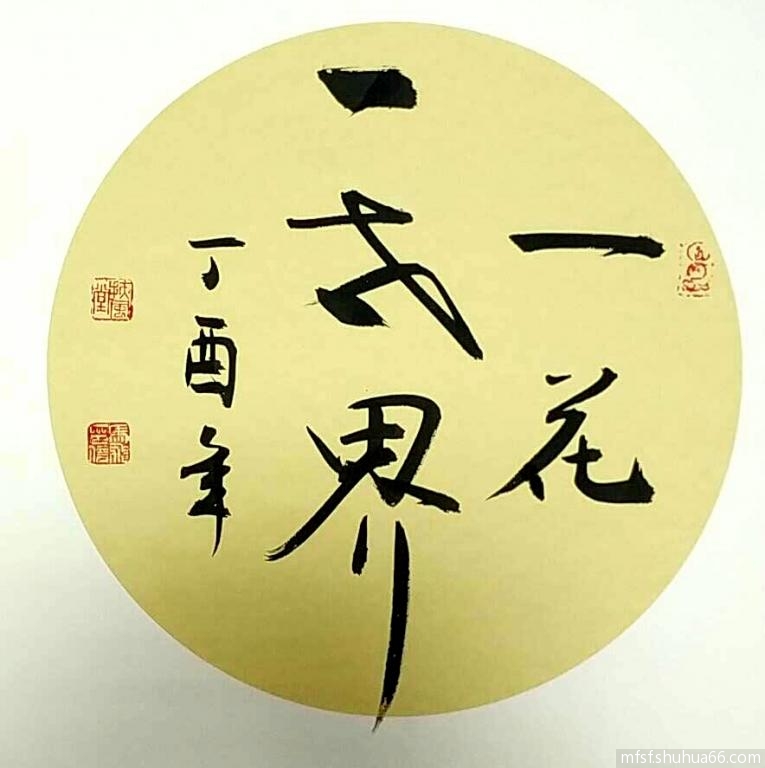 一花
一世界
丁酉年
mfsfshuhua66.com